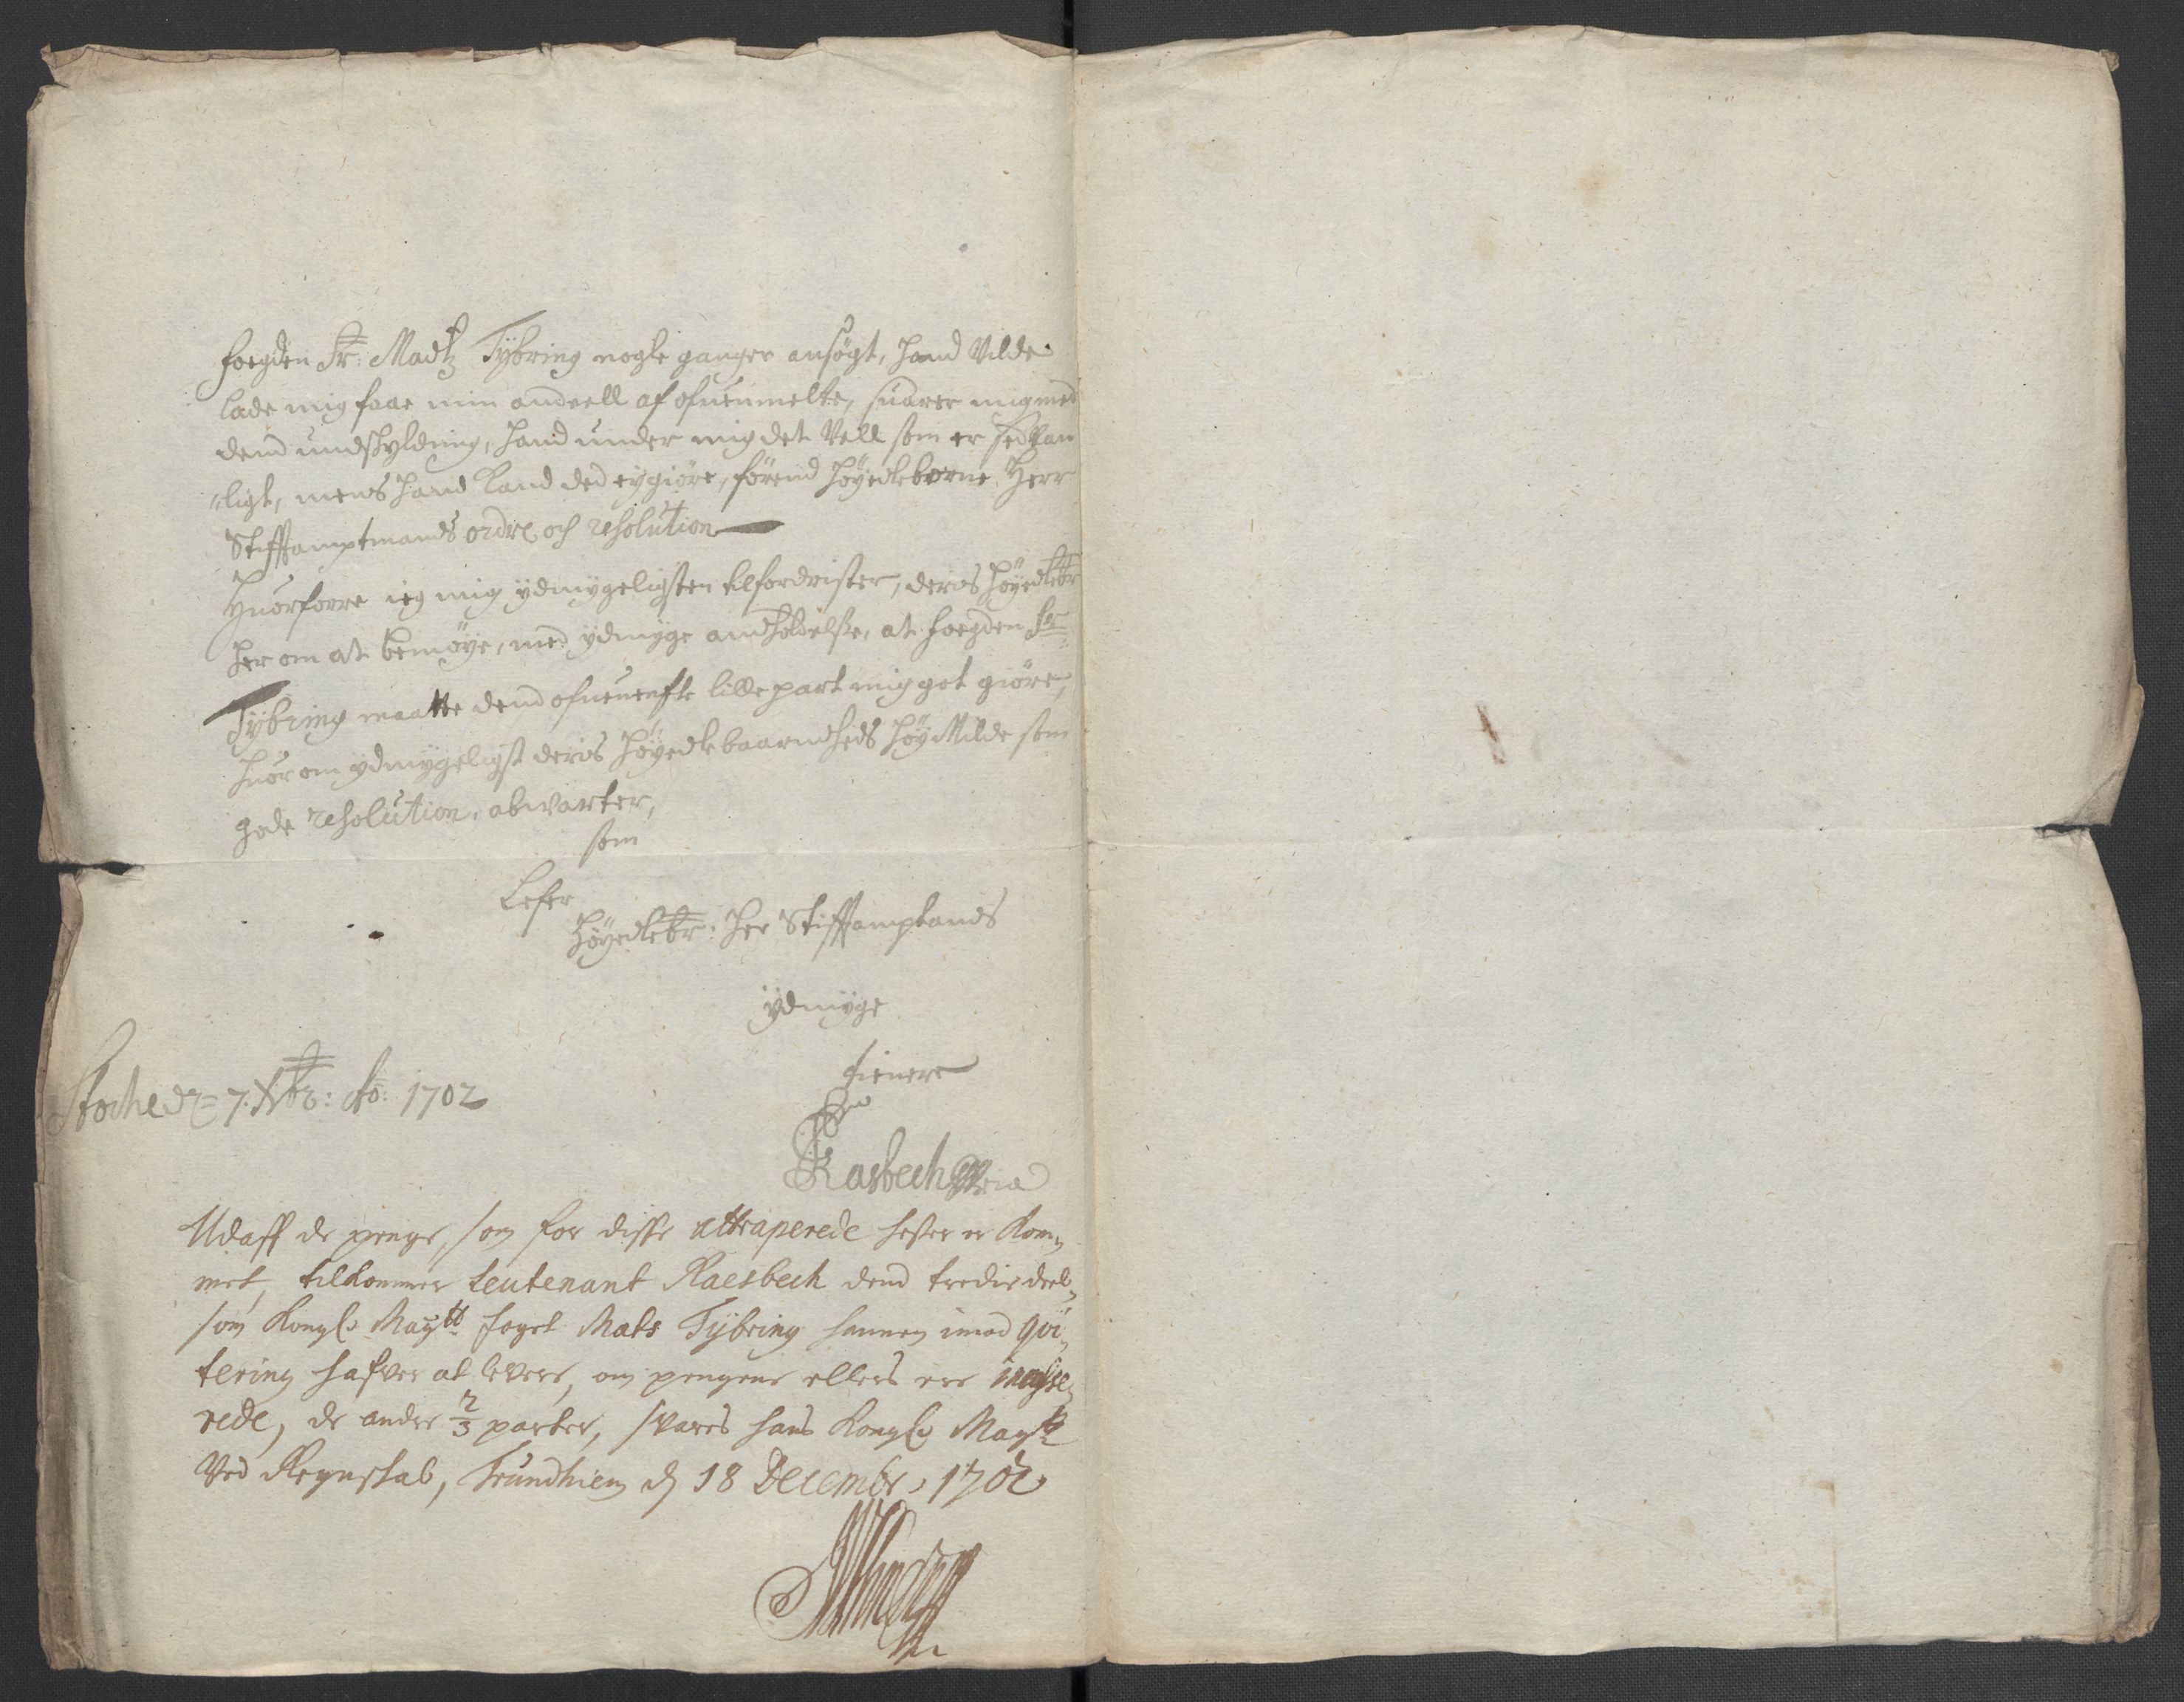 foegden Sr: Madtz Tybring nogle ganger ansøgt, hand Vilde
lade mig faae min andeell af ofuenmelte, suarer mig med
dend undskyldning, hand under mig det Vell som er sedvan
"ligt, mens hand kand ded ey giøre, førend høyedleborne Herr
Stifftamptmands ordre och resolution
Huorforre ieg mig ydmygeligsten tilfordrister, deris høyedlebr
her om at bemøye, med ydmyge andholdelse, at foegden Sr
Tybring maatte dend ofuenenfte lille part mig got giøre,
huorom ydmygeligst deris høyedlebaarnheds høy Milde som
gode resolution, abwarter,
som
høyedlebr: Her Stifftamptands
ydmyge
tienere
Stoche dz= 7. Xbr: Ao: 1702
Rasbech
Udaff de penge, som for disse attraperede hester er kom,,
met, tilkommer leutenant Raesbech dend tredie deel,,
som Kongl: Maytt foget Mats Tybring hannem imod qvi,,
tering hafver at levere, om pengene ellers ere incasse,,
rede, de andre 2/3 parter, svares hans Kongl: Maytt
Ved Regnskab, Trundhiem d 18 Decembr: 1702